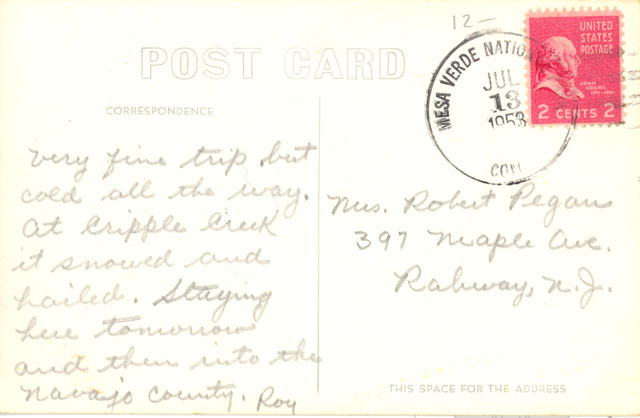 12-
POST CARD
CORRESPONDENCE
MESA VERDE NATIO
JUL
13
1953
COL
UNITED
STATES
POSTAGE
JOHN
ADAMS
2 CENTS 2
Very fine trip but
cold all the way.
At Cripple Creek
it snowed and
hailed. Staying
here tomorrow
and then into the
Navajo County. Roy
Mrs. Robert Pegan
397 Maple Ave.
Rahway, N.J.
THIS SPACE FOR THE ADDRESS